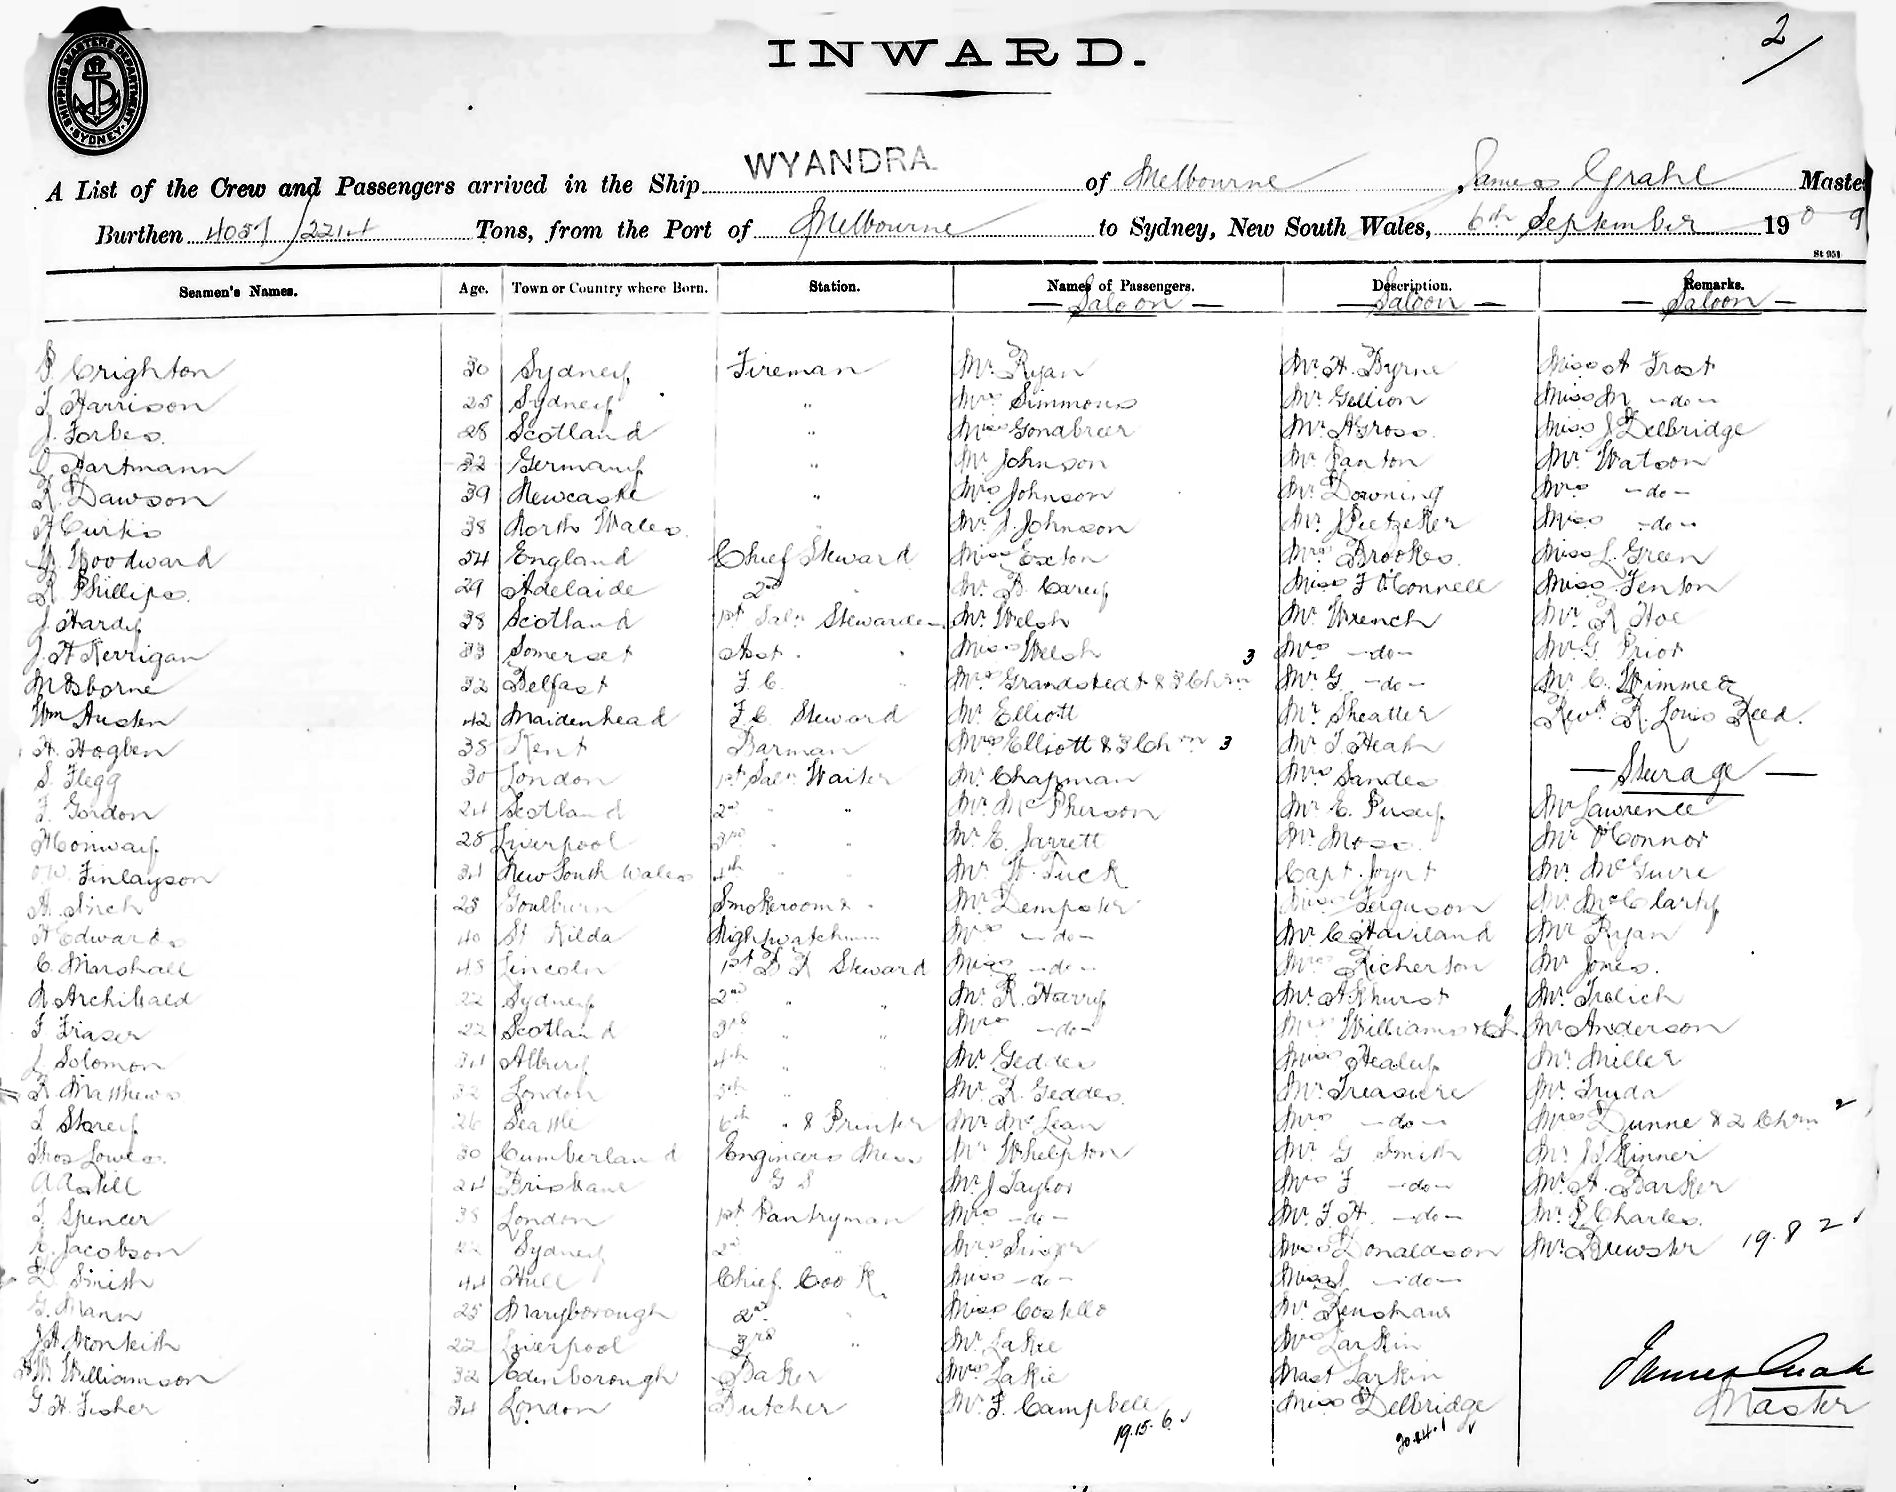 INWARD.
2/
SHIPPING MASTER'S DEPARTMENT SYDNEY
A List of the Crew and Passengers arrived in the Ship WYANDRA of Melbourne, James Grahl Master
Burthen 4057/2214 Tons, from the Port of Melbourne to Sydney, New South Wales, 6th September 1909
St 951
Seamen's Names. Age. Town or Country where Born. Station. Names of Passengers. Description. Remarks.
— Saloon — — Saloon — — Saloon —
Crighton 30 Sydney Fireman Mr. Ryan Mr. H. Byrne Miss A Frost
Harrison 25 Sydney " Mrs Simmons Mr Gellion Miss M -do-
J. Forbes. 28 Scotland " Miss Gonabreer Mr A Gross. Miss J Delbridge
Hartmann 32 Germany " Mr Johnson Mr Panton Mr. Watson
R. Dawson 39 Newcastle " Mrs Johnson Mr Downing Mrs -do-
A Curtis 38 North Wales. " Mr J. Johnson Mr J Pietzcker Miss -do-
W. Woodward 54 England Chief Steward Miss Exton Mrs Brookes. Miss L. Green
R Phillips. 29 Adelaide 2nd " Mr. B. Carey Miss F O'Connell Miss Fenton
J. Hardy 38 Scotland 1st Saln Stewardess Mr. Welsh Mr. Wrench Mr R Hoe
J. A Kerrigan 33 Somerset Asst. " Miss Welsh Mrs -do- Mr G. Prior
M Osborne 32 Belfast F.C. " Mrs Grandstedt & 3 Chrn 3 Mr G -do- Mr. C. Wimmera
Wm Austen 42 Maidenhead F.C. Steward Mr Elliott Mr Sheatter Revd. R. Louis Reed.
H. Hogben 38 Kent Barman Mrs Elliott & 3 Chrn 3 Mr T. Heath
S. Flegg 30 London 1st Saln Waiter Mr Chapman Mrs Sandes — Steerage —
F. Gordon 24 Scotland 2nd " " Mr. McPherson Mr E. Pusey Mr Lawrence
H Conway 28 Liverpool 3rd " " Mr. E. Jarrett Mr Moss. Mr O'Connor
W. Finlayson 34 New South Wales 4th " " Mr W. Tuck Capt. Joynt Mr. McGuire
A. Sinch 28 Goulburn Smokeroom " Mr Dempster Miss Ferguson Mr McClarty
A Edwards 40 St Kilda Nightwatchman Mrs -do- Mr C Haviland Mr Ryan
C. Marshall 48 Lincoln 1st B R Steward Miss -do- Mrs Richerson Mr Jones.
R Archibald 22 Sydney 2nd " " Mr. R. Harry Mr Akhurst Mr. Frolich
F Fraser 22 Scotland 3rd " " Mrs -do- Mrs Williams Mr Anderson
J Solomon 34 Albury 4th " " Mr Geddes Miss Healey Mr. Miller
R Matthews 32 London 5th " " Mr. R. Geddes. Mr Treasure Mr Fruda
F Storey 26 Seattle 6th " & Printer Mr McLean Mrs -do- Mrs Dunne & 2 Chrn 2
Thos Lowes. 30 Cumberland Engineers Mess Mr Whelpton Mr G Smith Mr J Skinner
A Astill 24 Brisbane G S Mr J Taylor Mrs F -do- Mr. A. Barker
F Spencer 38 London 1st Pantryman Mrs -do- Mr. F. H. -do- Mr. P. Charles.
Jacobson 22 Sydney 2nd " Mrs Singer Miss Donaldson Mr Brewster 19.8 2
D. Smith 44 Hull Chief Cook Miss -do- Miss J -do-
G. Mann 25 Maryborough 2nd " Miss Costello Mr Renshaw
J A Monkith 22 Liverpool 3rd " Mr Lakie Mrs Larkin
W. Williamson 32 Edinborough Baker Mrs Lakie Mast Larkin
G H Fisher 34 London Butcher Mr F. Campbell Miss Delbridge
19.15.6 20.14.1
James Grahl
Master